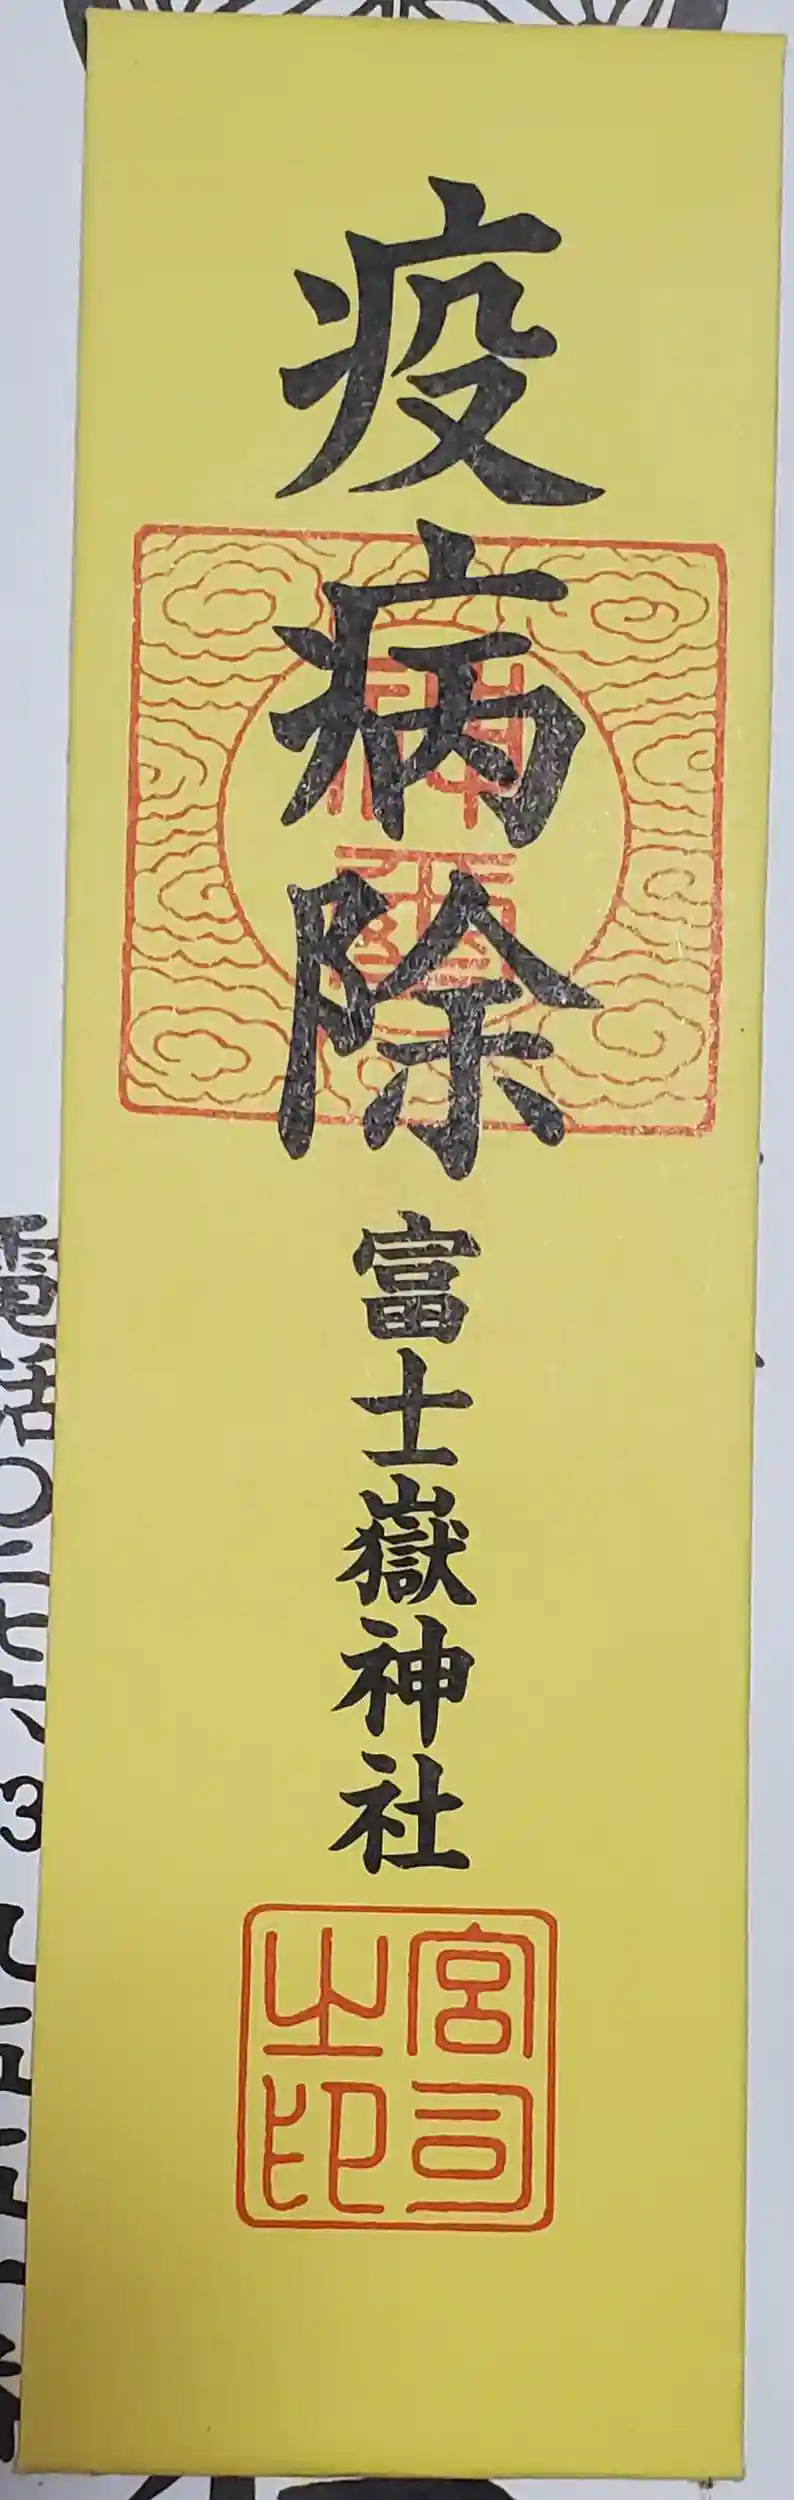 疫病除
富士嶽神社
神璽
宮司之印
電話〇
3